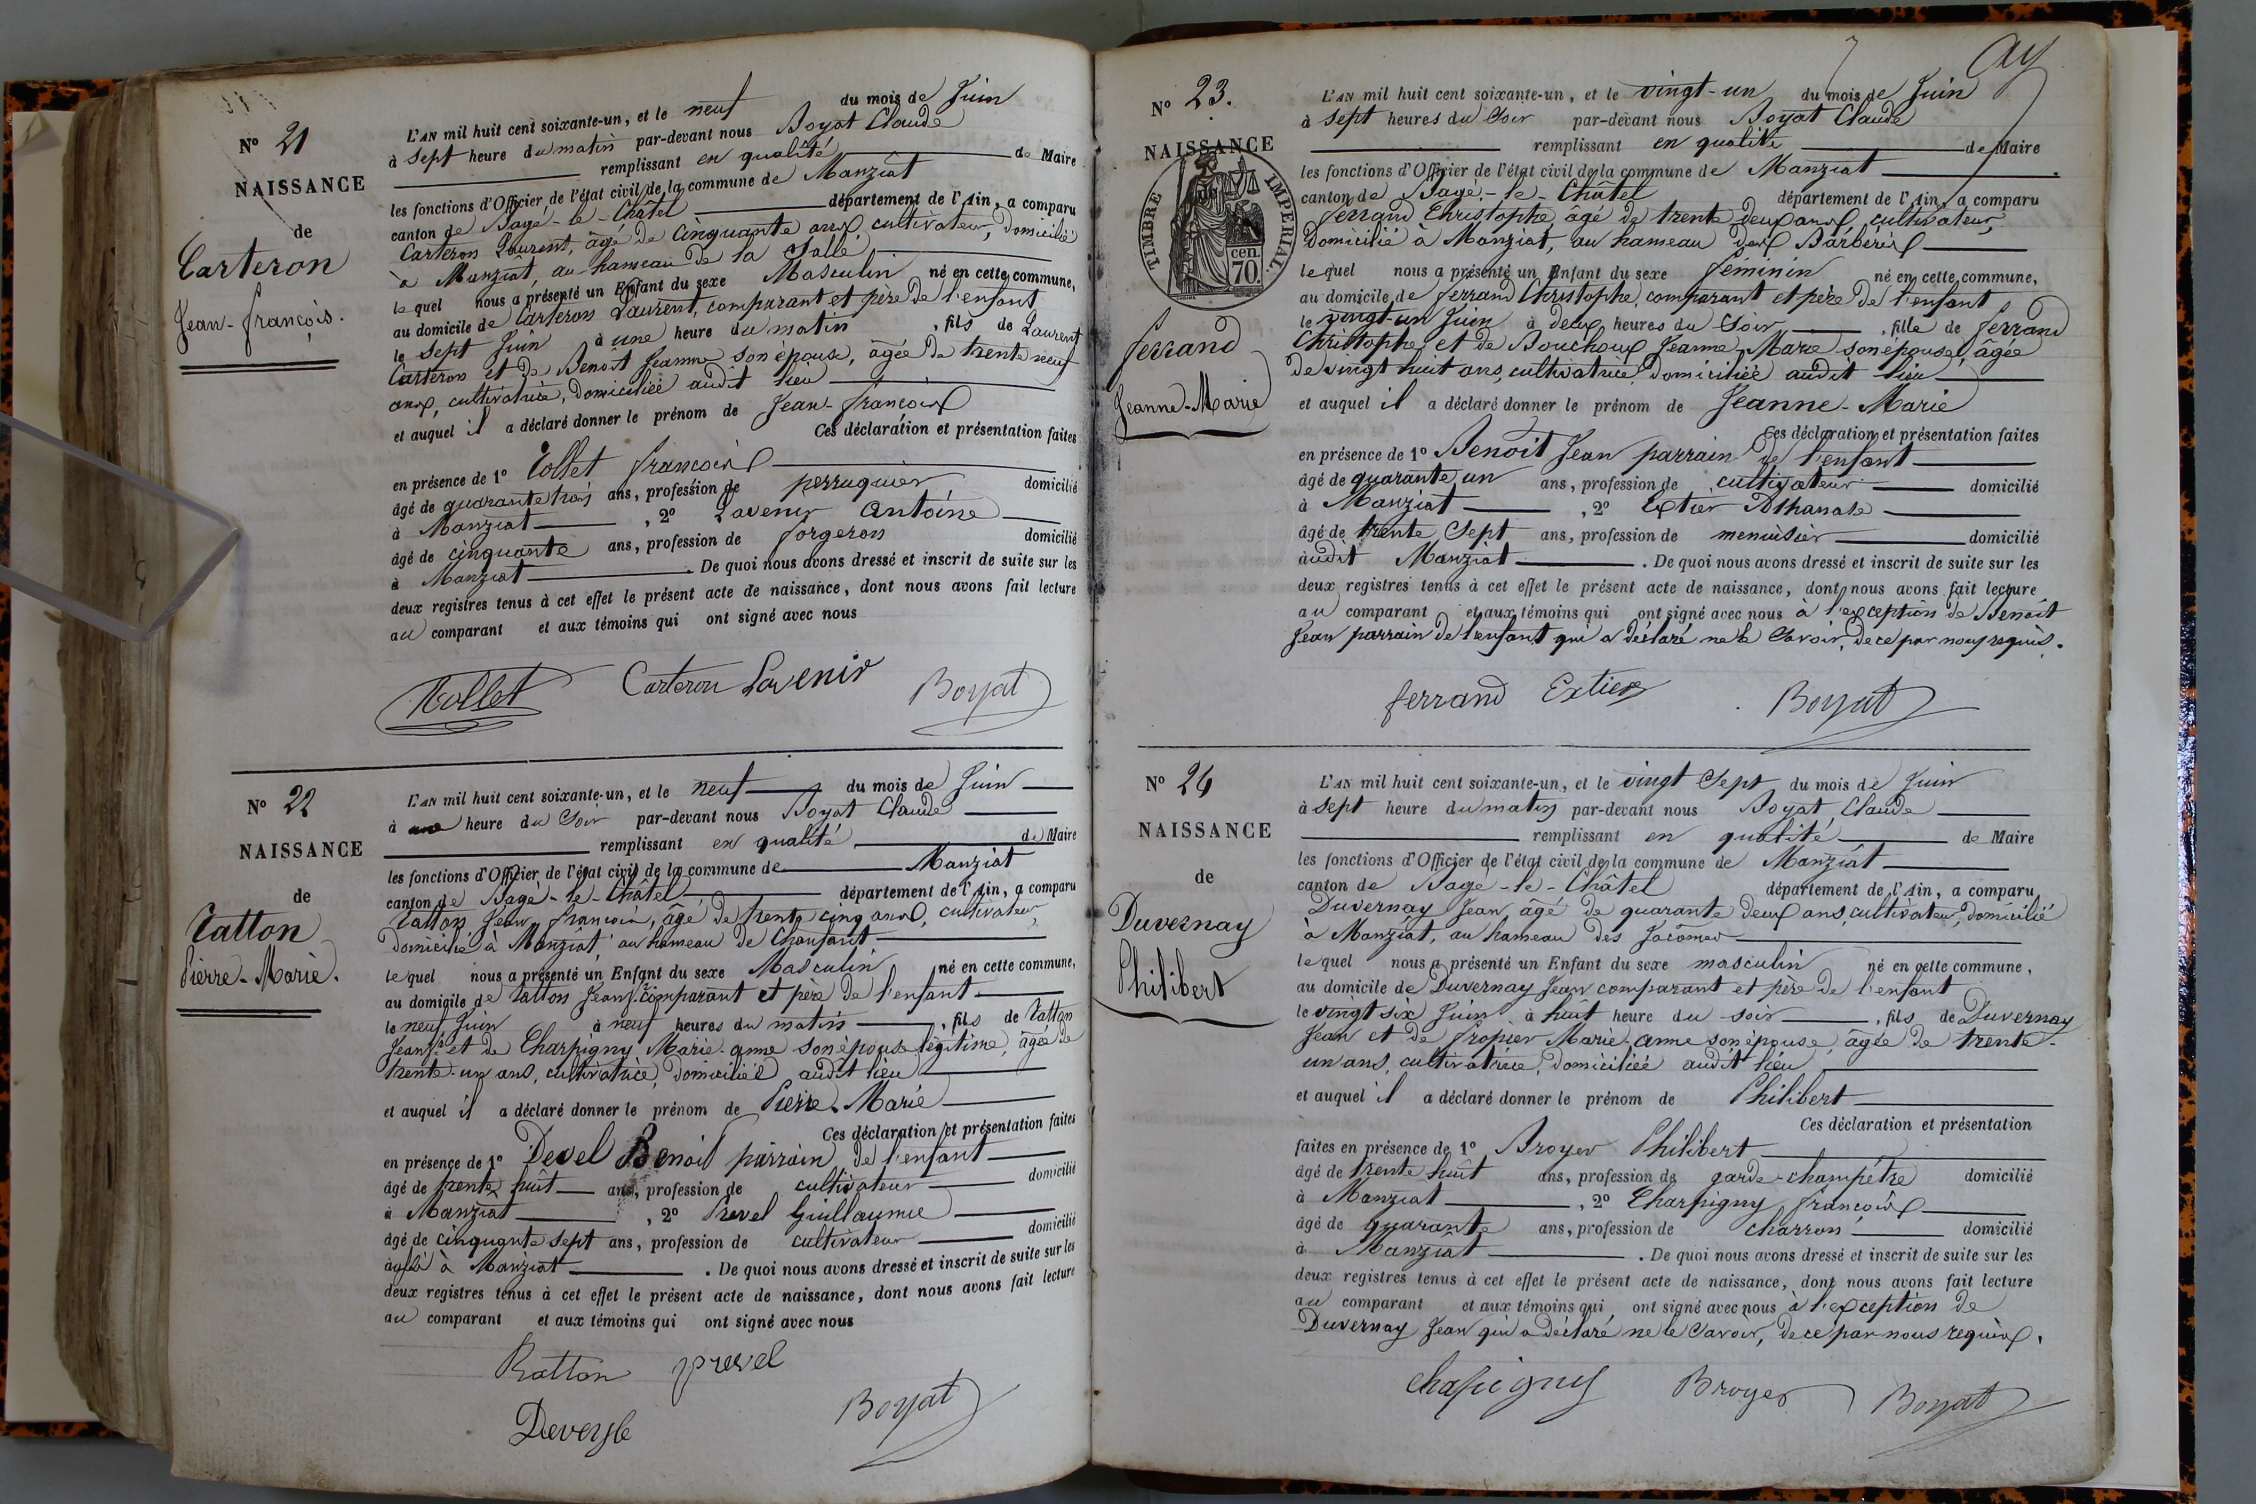 Nº 21
NAISSANCE
de
Carteron
Jean-François.
L'AN mil huit cent soixante-un, et le neuf du mois de Juin
à sept heure du matin par-devant nous Boyat Claude
remplissant en qualité de Maire
les fonctions d'Officier de l'état civil de la commune de Manziat
canton de Bagé-le-Châtel département de l'Ain, a comparu
Carteron Laurent, âgé de cinquante ans, cultivateur, domicilié
à Manziat, au hameau de la Salle
le quel nous a présenté un Enfant du sexe Masculin né en cette commune,
au domicile de Carteron Laurent, comparant et père de l'enfant
le sept Juin à une heure du matin, fils de Laurent
Carteron et de Benoît Jeanne son épouse, âgée de trente neuf
ans, cultivatrice, domiciliée audit lieu
et auquel il a déclaré donner le prénom de Jean-François
Ces déclaration et présentation faites
en présence de 1º Tollet François
âgé de quarante trois ans, profession de perruquier domicilié
à Manziat, 2º Lavenir Antoine
âgé de cinquante ans, profession de forgeron domicilié
à Manziat. De quoi nous avons dressé et inscrit de suite sur les
deux registres tenus à cet effet le présent acte de naissance, dont nous avons fait lecture
au comparant et aux témoins qui ont signé avec nous
Tollet Carteron Lavenir Boyat
Nº 22
NAISSANCE
de
Catton
Pierre-Marie.
L'AN mil huit cent soixante-un, et le neuf du mois de Juin
à une heure du Soir par-devant nous Boyat Claude
remplissant en qualité de Maire
les fonctions d'Officier de l'état civil de la commune de Manziat
canton de Bagé-le-Châtel département de l'Ain, a comparu
Catton Jean François, âgé de trente cinq ans, cultivateur
domicilié à Manziat, au hameau de Chanfant
le quel nous a présenté un Enfant du sexe Masculin né en cette commune,
au domicile de Catton Jean f.s comparant et père de l'enfant
le neuf Juin à neuf heures du matin, fils de Catton
Jean f.s et de Charpigny Marie-anne son épouse légitime, âgée de
trente-un ans, cultivatrice, domiciliée audit lieu
et auquel il a déclaré donner le prénom de Pierre-Marie
Ces déclaration et présentation faites
en présence de 1º Devel Benoit parrain de l'enfant
âgé de trente huit ans, profession de cultivateur domicilié
à Manziat, 2º Prevel Guillaume
âgé de cinquante sept ans, profession de cultivateur domicilié
à Manziat. De quoi nous avons dressé et inscrit de suite sur les
deux registres tenus à cet effet le présent acte de naissance, dont nous avons fait lecture
au comparant et aux témoins qui ont signé avec nous
Catton prevel
Deveyle Boyat
Nº 23.
NAISSANCE
TIMBRE IMPERIAL.
70 cen.
Ferrand
Jeanne-Marie
L'AN mil huit cent soixante-un, et le vingt-un du mois de Juin
à sept heures du Soir par-devant nous Boyat Claude
remplissant en qualité de Maire
les fonctions d'Officier de l'état civil de la commune de Manziat
canton de Bagé-le-Châtel département de l'Ain, a comparu
Ferrand Christophe âgé de trente deux ans, cultivateur,
domicilié à Manziat, au hameau des Barberis
le quel nous a présenté un Enfant du sexe féminin né en cette commune,
au domicile de Ferrand Christophe, comparant et père de l'enfant
le vingt-un Juin à deux heures du Soir, fille de Ferrand
Christophe et de Bouchoux Jeanne-Marie son épouse, âgée
de vingt huit ans, cultivatrice, domiciliée audit lieu
et auquel il a déclaré donner le prénom de Jeanne-Marie
Ces déclaration et présentation faites
en présence de 1º Benoit Jean parrain de l'enfant
âgé de quarante un ans, profession de cultivateur domicilié
à Manziat, 2º Extier Athanase
âgé de trente Sept ans, profession de menuisier domicilié
audit Manziat. De quoi nous avons dressé et inscrit de suite sur les
deux registres tenus à cet effet le présent acte de naissance, dont nous avons fait lecture
au comparant et aux témoins qui ont signé avec nous à l'exception de Benoit
Jean parrain de l'enfant qui a déclaré ne le savoir, de ce par nous requis.
ferrand Extier Boyat
Nº 24
NAISSANCE
de
Duvernay
Philibert
L'AN mil huit cent soixante-un, et le vingt Sept du mois de Juin
à sept heure du matin par-devant nous Boyat Claude
remplissant en qualité de Maire
les fonctions d'Officier de l'état civil de la commune de Manziat
canton de Bagé-le-Châtel département de l'Ain, a comparu
Duvernay Jean âgé de quarante deux ans, cultivateur, domicilié
à Manziat, au hameau des
le quel nous a présenté un Enfant du sexe masculin né en cette commune,
au domicile de Duvernay Jean comparant et père de l'enfant
le vingt six Juin à huit heure du soir, fils de Duvernay
Jean et de Fropier Marie-anne son épouse, âgée de trente-
un ans, cultivatrice, domiciliée audit lieu
et auquel il a déclaré donner le prénom de Philibert
Ces déclaration et présentation
faites en présence de 1º Broyer Philibert
âgé de trente huit ans, profession de garde-champêtre domicilié
à Manziat, 2º Charpigny François
âgé de quarante ans, profession de charron domicilié
à Manziat. De quoi nous avons dressé et inscrit de suite sur les
deux registres tenus à cet effet le présent acte de naissance, dont nous avons fait lecture
au comparant et aux témoins qui ont signé avec nous à l'exception de
Duvernay Jean qui a déclaré ne le savoir, de ce par nous requis.
Chapigny Broyer Boyat